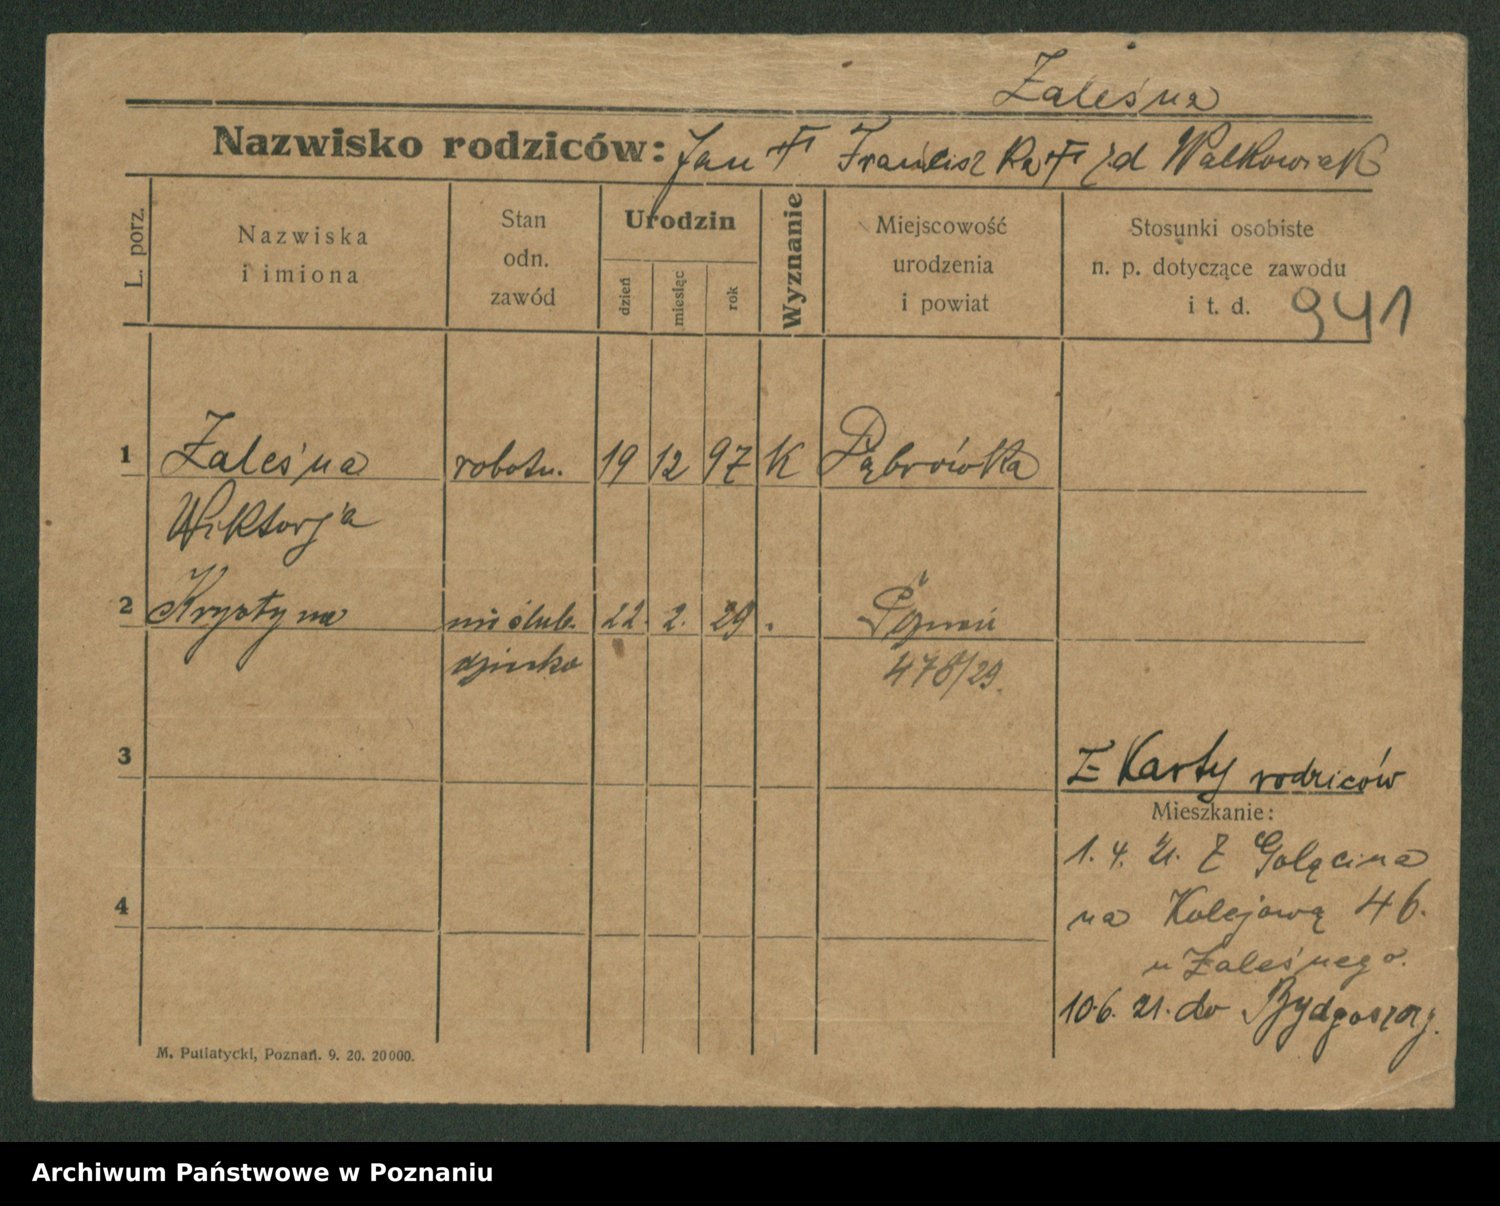 Zaleśna
Nazwisko rodziców: Jan Franciszka z d Walkowiak
L. porz.
Nazwiska
i imiona
Stan
odn.
zawód
Urodzin
dzień
miesiąc
rok
Wyznanie
Miejscowość
urodzenia
i powiat
Stosunki osobiste
n. p. dotyczące zawodu
i t. d.
941
1 Zaleśna robotn. 19 12 97 K Dąbrówka
Wiktorja
2 Krystyna nieślub. 22. 2. 29 Poznań
dziecko 478/29.
3
Z Karty rodziców
Mieszkanie:
1. 4. 21. Z Golęcina
4
na Kolejową 46.
u Zaleśnego.
10.6. 21. do Bydgoszczy.
M. Putiatycki, Poznań. 9. 20. 20000.
Archiwum Państwowe w Poznaniu